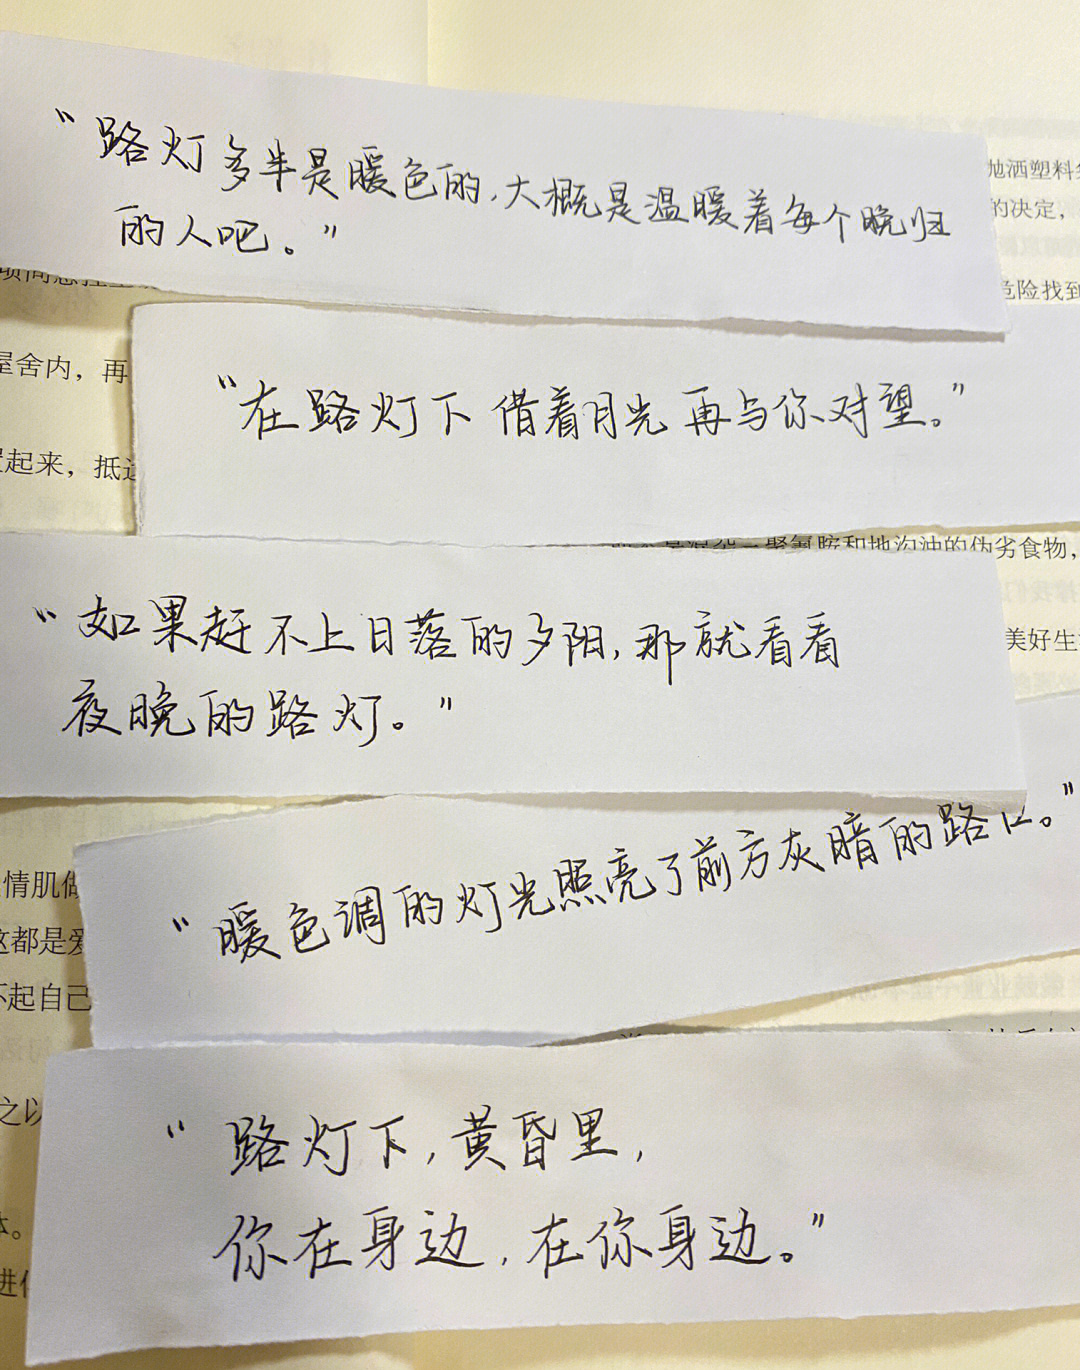 "路灯多半是暖色的,大概是温暖着每个晚归
的人吧。"
抛洒塑料
的决定,
危险找到
屋舍内，再
"在路灯下 借着月光 再与你对望。"
起来，抵
聚氰胺和地沟油的伪劣食物，
"如果赶不上日落的夕阳,那就看看
夜晚的路灯。"
美好生
"暖色调的灯光照亮了前方灰暗的路口。"
情肌
这都是爱
不起自己
之以
"路灯下,黄昏里,
你在身边,在你身边。"
体。
进化